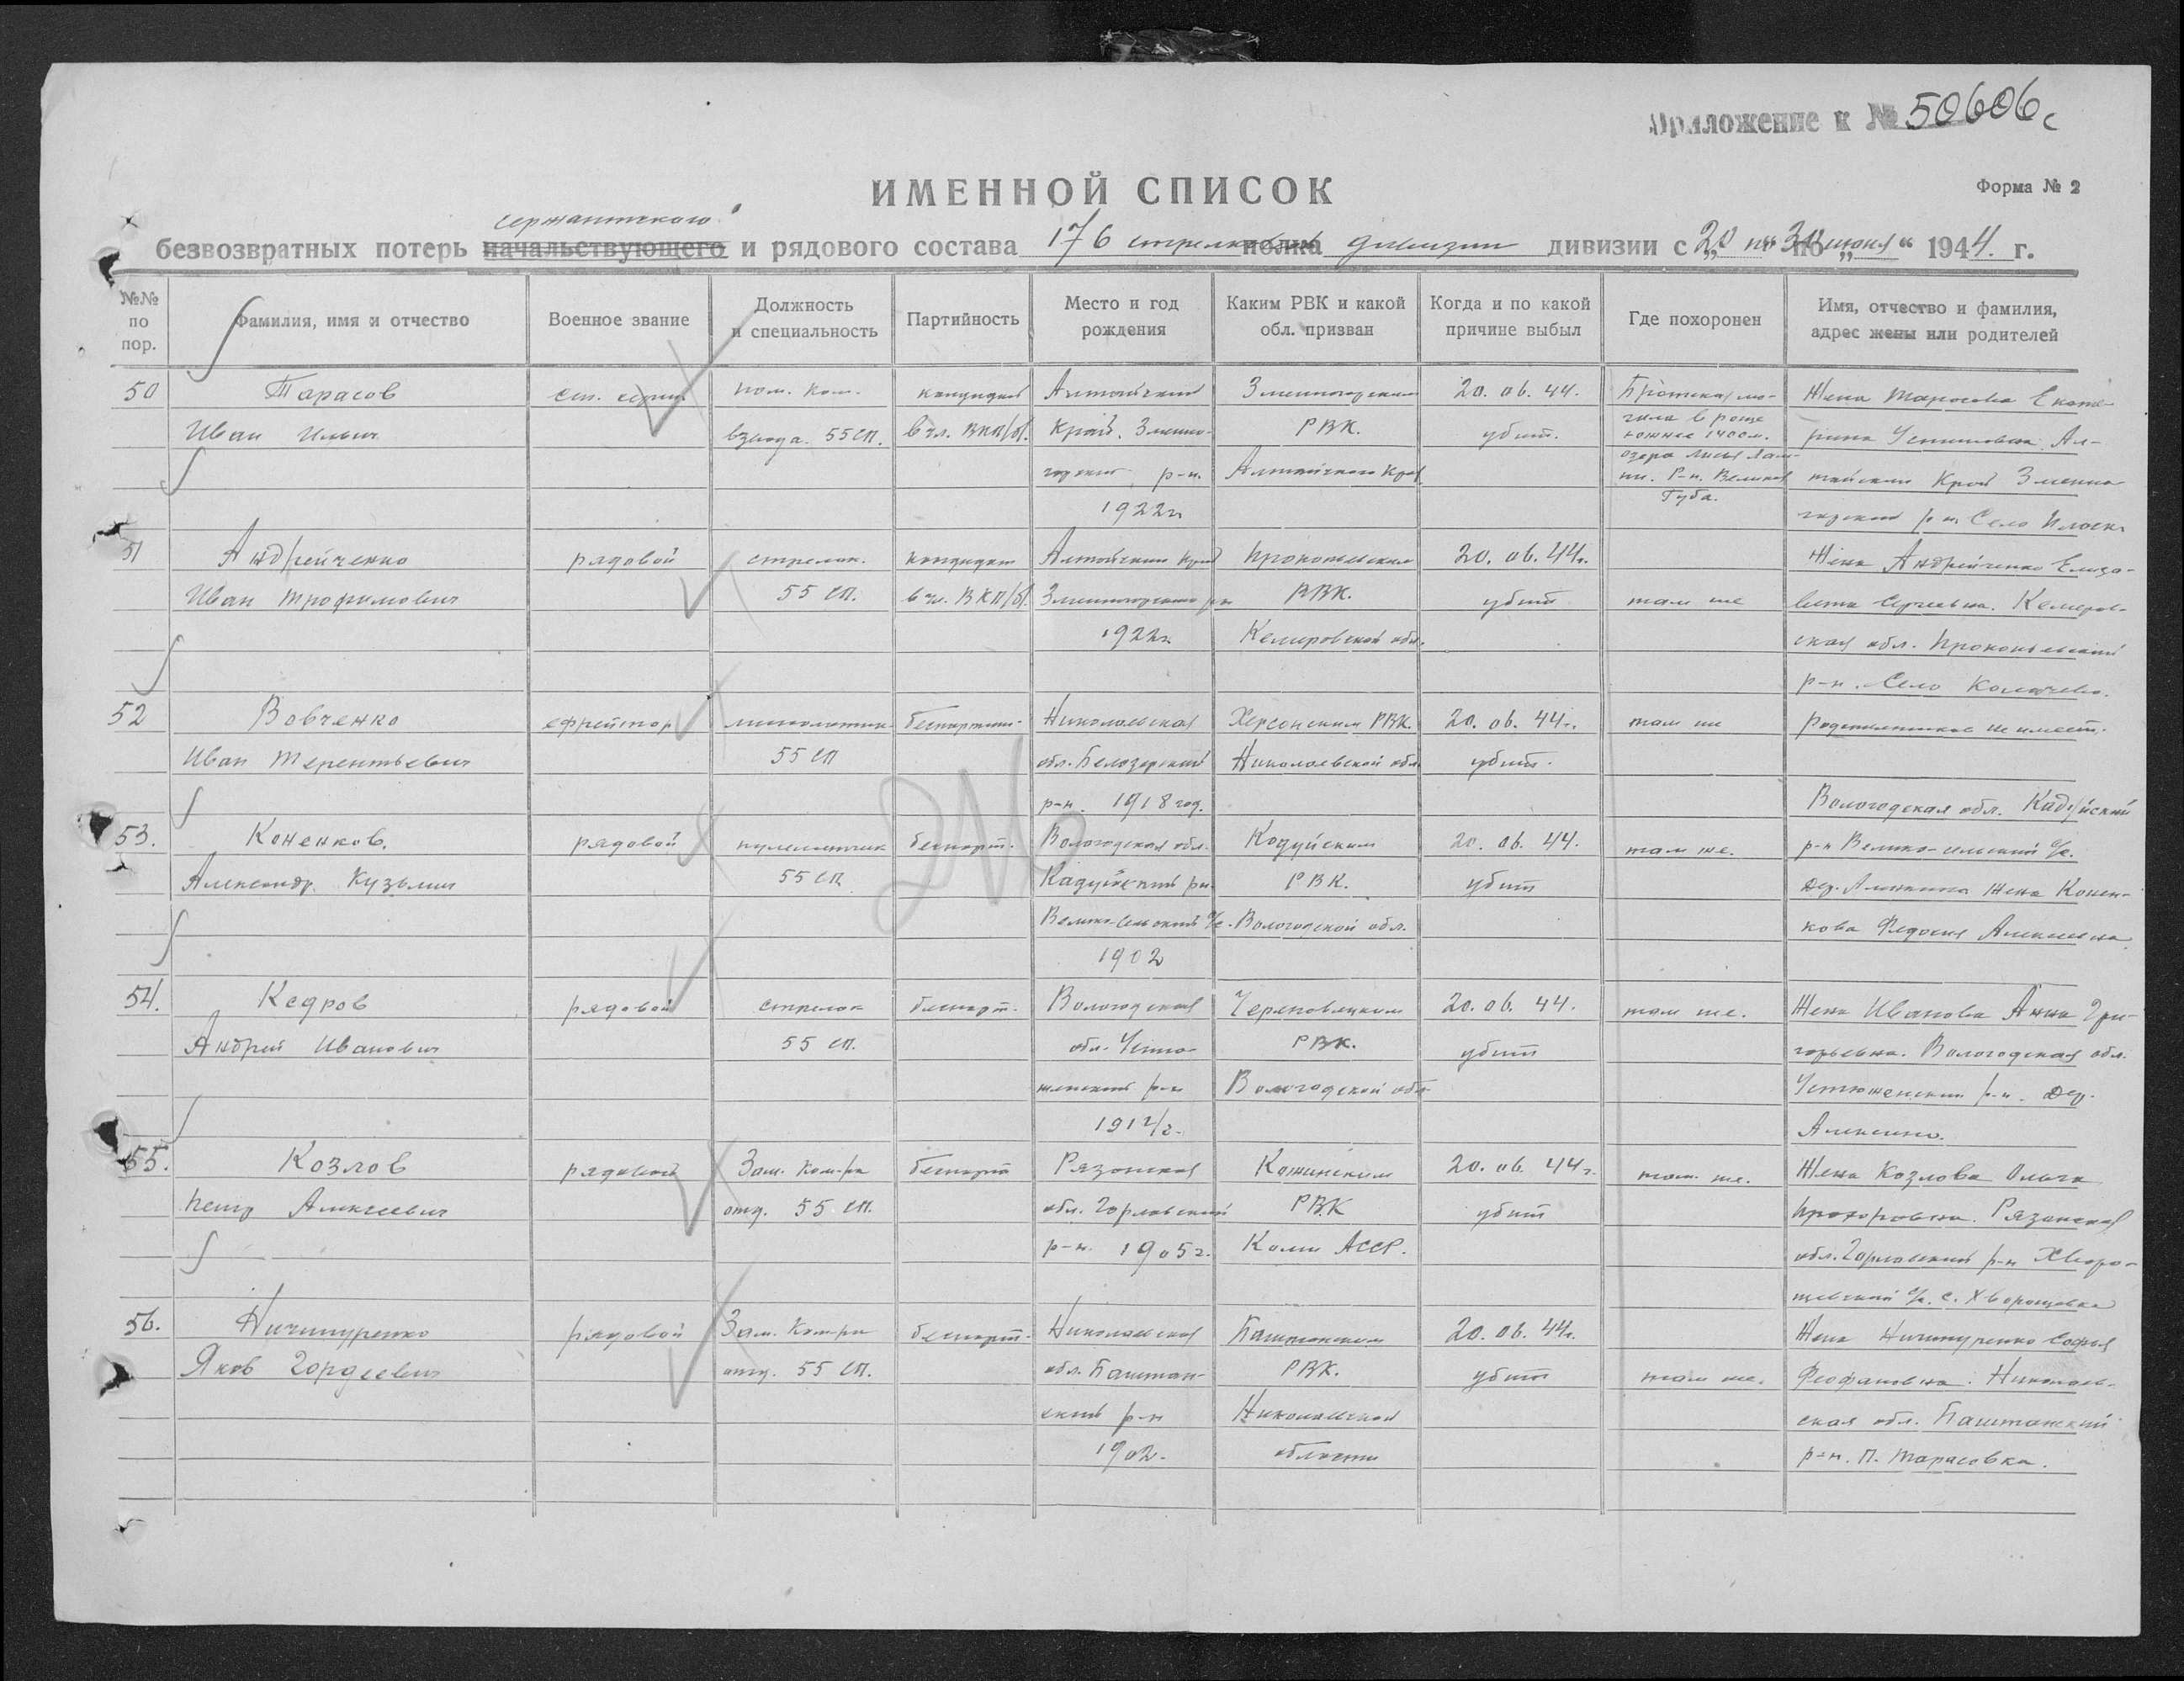 Приложение к № 50606с
ИМЕННОЙ СПИСОК
Форма № 2
сержантского
безвозвратных потерь начальствующего и рядового состава 176 стрелковой полка дивизии дивизии с „20 по 30 июня“ 1944. г.
№№ по пор.
Фамилия, имя и отчество
Военное звание
Должность и специальность
Партийность
Место и год рождения
Каким РВК и какой обл. призван
Когда и по какой причине выбыл
Где похоронен
Имя, отчество и фамилия, адрес жены или родителей
50 Тарасов сен. серж. пом. ком. кандидат Алтайский Змеиногорским 20.06.44. Братская мо- Жена Тарасова Екате-
Иван Ильич взвода 55 сп. в чл. ВКП/б/. край. Змеино- РВК. убит. гила в роще южнее 1400 м. рина Устиновна Ал-
горский р-н. Алтайского края озера Лисья Лам- пи. Р-н. Великая Губа. тайский край Змеино-
1922 г. горский р-н Село
51 Андрейченко рядовой стрелок. кандидат Алтайский край Прокопьевским 20.06.44г. Жена Андрейченко Елиза-
Иван Трофимович 55 сп. в чл. ВКП/б/. Змеиногорский р-н РВК. убит там же вета Сергеевна. Кемеров-
1922г. Кемеровской обл. ская обл. Прокопьевский
р-н. Село
52 Вовченко ефрейтор минометчик беспартий. Николаевская Херсонским РВК. 20.06.44г. там же Родственников не имеет.
Иван Терентьевич 55 сп обл. Белозерский Николаевской обл. убит.
р-н. 1918 год. Вологодская обл. Кадуйский
53. Коненков. рядовой пулеметчик беспарт. Вологодская обл. Кадуйским 20.06.44. там же. р-н Велико-сельский с/с.
Александр Кузьмич 55 сп Кадуйский р-н. РВК. убит дер. жена Конен-
Велико-сельский с/с. Вологодской обл. кова Федосия Алексеевна
1902
54. Кедров рядовой стрелок беспарт. Вологодская Череповецким 20.06.44. там же. Жена Иванова Анна Гри-
Андрей Иванович 55 сп. обл. Устю- РВК. убит горьевна. Вологодская обл.
женский р-н Вологодской обл. Устюженский р-н. дер.
Алексино.
55. Козлов рядовой Зам. ком-ра беспарт Рязанская Кожвинским 20.06.44г. там же. Жена Козлова Ольга
Петр Алексеевич отд. 55 сп. обл. Горловский РВК убит Прохоровна. Рязанская
р-н. 1905г. Коми АССР. обл. Горловский р-н Хворо-
щевский с/с. с. Хворощевка
56. Ничипуренко рядовой Зам. Ком-ра беспарт. Николаевская Баштанским 20.06.44г. Жена Ничипуренко Софья
Яков Гордеевич отд. 55 сп. обл. Баштан- РВК. убит там же. Феофановна. Николаев-
ский р-н Николаевской ская обл. Баштанский
1902. области р-н. П. Тарасовка.